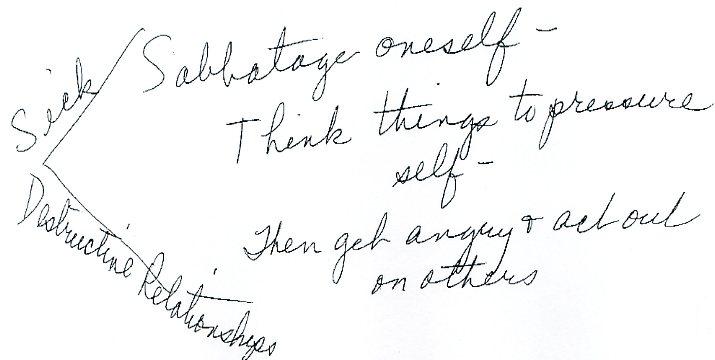 Seek
Sabbatage oneself-
Think things to pressure
self-
Then get angry & act out
on others
Destructive Relationships